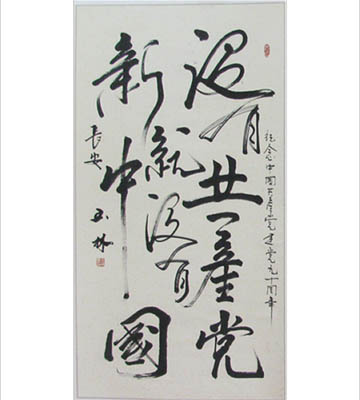 纪念中国共產党建党九十周年
没有共產党
就没有
新中國
長安
玉林